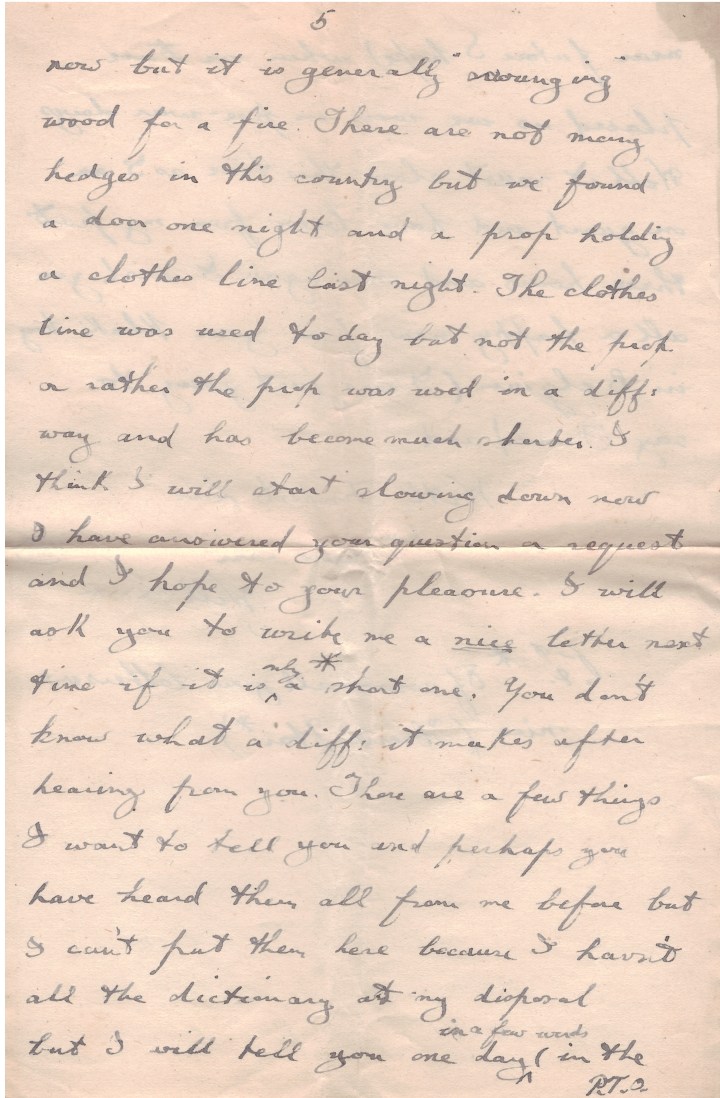 5
now but it is generally "scrounging"
wood for a fire. There are not many
hedges in this country but we found
a door one night and a prop holding
a clothes line last night. The clothes
line was used to day but not the prop
or rather the prop was used in a diff:
way and has become much shorter. I
think I will start slowing down now
I have answered your question or request
and I hope to your pleasure. I will
ask you to write me a nice letter next
time if it is only a short one. You don't
know what a diff: it makes after
hearing from you. There are a few things
I want to tell you and perhaps you
have heard them all from me before but
I can't put them here because I havn't
all the dictionary at my disposal
but I will tell you one day in a few words ( in the
P.T.O.